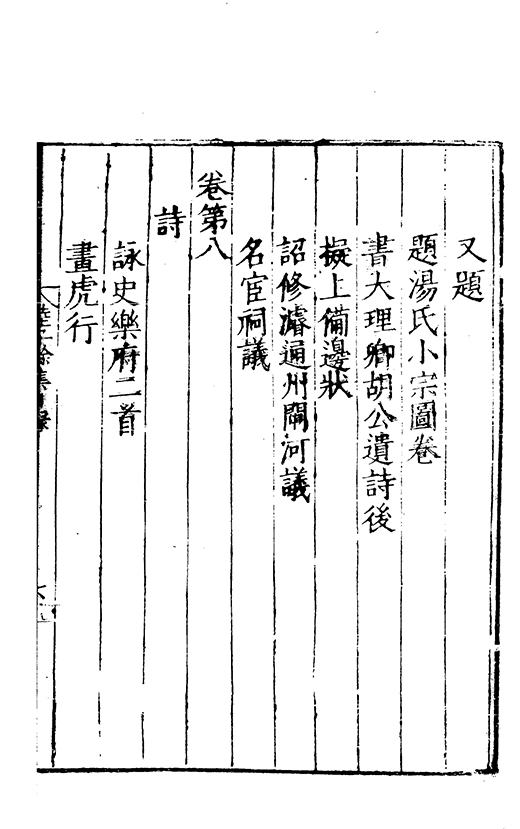 又題
題湯氏小宗圖卷
書大理卿胡公遺詩後
擬上備邊狀
詔修濬通州閘河議
名宦祠議
卷第八
詩
詠史樂府二首
畫虎行